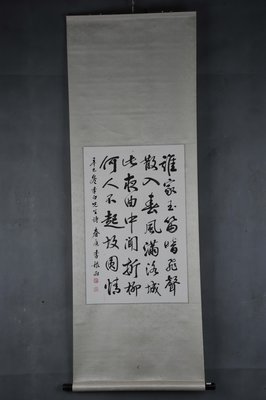 谁家玉笛暗飞聲
散入春風滿洛城
此夜曲中聞折柳
何人不起故園情
辛巳歲李白吹笛詩